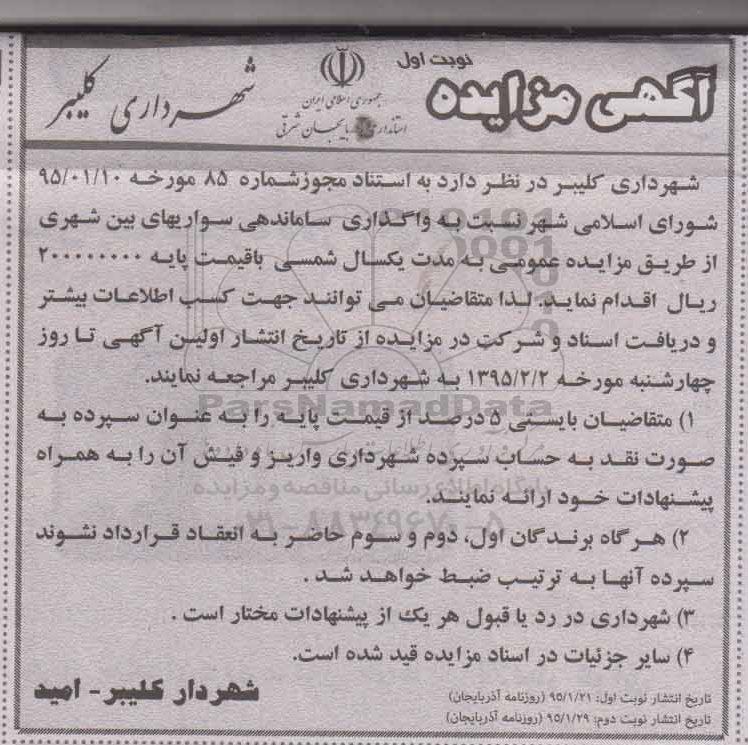 نوبت اول
آگهی مزایده
جمهوری اسلامی ایران
استانداری آذربایجان شرقی
شهرداری کلیبر
شهرداری کلیبر در نظر دارد به استناد مجوزشماره ۸۵ مورخه ۹۵/۰۱/۱۰
شورای اسلامی شهر نسبت به واگذاری ساماندهی سواریهای بین شهری
از طریق مزایده عمومی به مدت یکسال شمسی باقیمت پایه ۲۰۰۰۰۰۰۰۰
ریال اقدام نماید. لذا متقاضیان می توانند جهت کسب اطلاعات بیشتر
و دریافت اسناد و شرکت در مزایده از تاریخ انتشار اولین آگهی تا روز
چهارشنبه مورخه ۱۳۹۵/۲/۲ به شهرداری کلیبر مراجعه نمایند.
۱) متقاضیان بایستی ۵ درصد از قیمت پایه را به عنوان سپرده به
صورت نقد به حساب سپرده شهرداری واریز و فیش آن را به همراه
پیشنهادات خود ارائه نمایند.
۲) هرگاه برندگان اول، دوم و سوم حاضر به انعقاد قرارداد نشوند
سپرده آنها به ترتیب ضبط خواهد شد .
۳) شهرداری در رد یا قبول هر یک از پیشنهادات مختار است .
۴) سایر جزئیات در اسناد مزایده قید شده است.
تاریخ انتشار نوبت اول: ۹۵/۱/۲۱ (روزنامه آذربایجان)
تاریخ انتشار نوبت دوم: ۹۵/۱/۲۹ (روزنامه آذربایجان)
شهردار کلیبر- امید
ParsNamadData
پایگاه اطلاع رسانی مناقصه و مزایده
۰۲۱-۸۸۳۴۹۶۷۰-۵